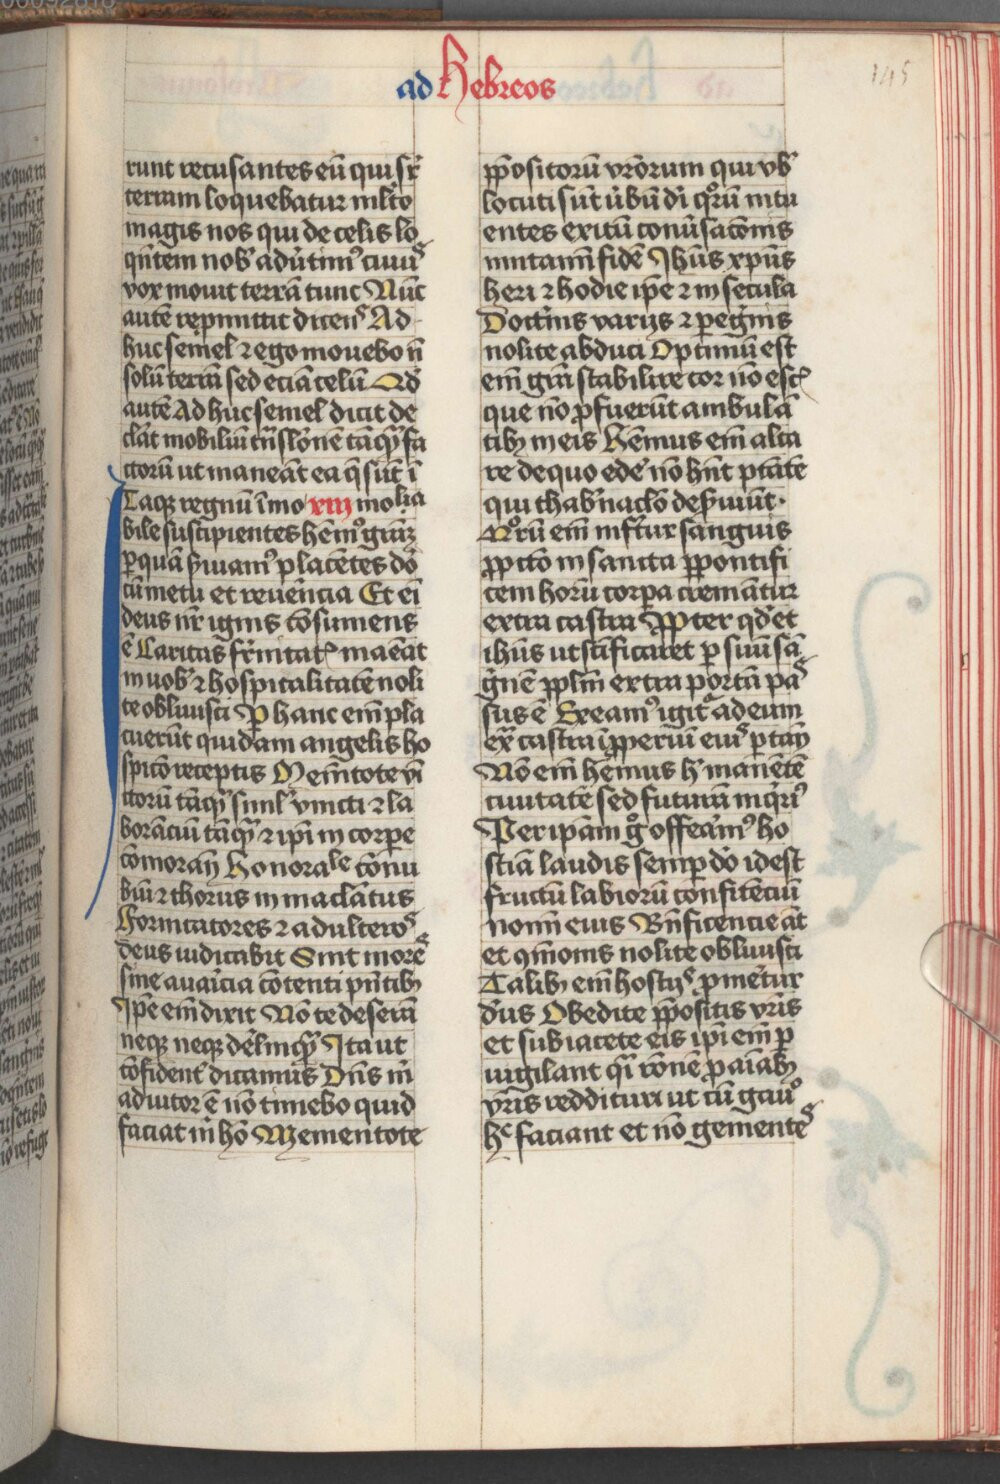 ad Hebreos
145
runt recusantes eū qui sr̄
terram loquebatur mlto
magis nos qui de celis lo
qn̄tem nob adūtimꝰ cuius
vox mouit terrā tunc Nūc
autē repmittit dicens Ad
huc semel ⁊ ego mouebo n̄
solū terrā sed eciā celū Qd
autē Ad huc semel dicit de
clāt mobiliū trīslonē tāqꝫ fa
ctorū ut maneāt ea q̄ sūt ī
Itaqꝫ regnū īmo xiii mobia
bile suscipientes hēmꝰ grām
p quā suiamꝰ placētes dō
cū metu et reuēncia Et em̄
deus nr̄ ignis cōsumens
ē Caritas fr̄nitatꝭ maēat
in uob ⁊ hospitalitatē noli
te obliuisci Ꝑ hanc em̄ pla
cuerūt quidam angelis ho
spicō receptis Mem̄tote vī
ctorū tāqꝫ siml vincti ⁊ la
borāciū tāqꝫ ⁊ ip̄i in corpe
cōmorāt Honorale cōnu
biū ⁊ thorus inmaclātus
Fornicatores ⁊ adulteros
deus iudicabit Sint mores
sine auaricia cōtenti pn̄tibꝫ
Ip̄e em̄ dixit Nō te deserā
neqꝫ neqꝫ derlinqꝫ Ita ut
cōfident dicamus Dn̄s m̄
adiutor ē nō timebo quid
faciat m̄ hō Mementote
pp̄ositorū vr̄orum qui vob
locuti sūt ūbū dī qꝛū intu
entes exitū conūsacōnis
imitamī fidē Ihūs xp̄us
heri ⁊ hodie ip̄e ⁊ in secula
Doctīnis varijs ⁊ pegnis
nolite abduci Optimū est
em̄ grā stabilire cor nō escꝭ
que nō pfuerūt ambulā
tibꝫ in eis Hēmus em̄ alta
re de quo edē nō hn̄t ptātē
qui thab'naclō deseruiūt
Qꝛū em̄ infertur sanguis
p pctō in sancta p pontifi
cem horū corpa cremātur
extra castra Ꝓpter qd et
ihūs ut sctificaret p suū sā
gnē pplm extra portā pas
sus ē Exeamꝰ igitr ad eum
ex castra īpperiū eius portātes
Nō em̄ hēmus h' manētē
ciuitatē sed futurā inqrīꝰ
Per ip̄am gͦ offeramꝰ ho
stiā laudis semp dō id est
fructū labiorū confitēciū
nomī eius Bn̄ficencie āt
et cōīonis nolite obliuisci
Talibꝫ em̄ hostijs pmēetur
dūs Obedite pp̄ositis vr̄is
et subiacete eis ip̄i em̄ p
uigilant q̄ī rōnē p aīabꝫ
vr̄is reddituri ut cū gaū
hͦ faciant et nō gementes